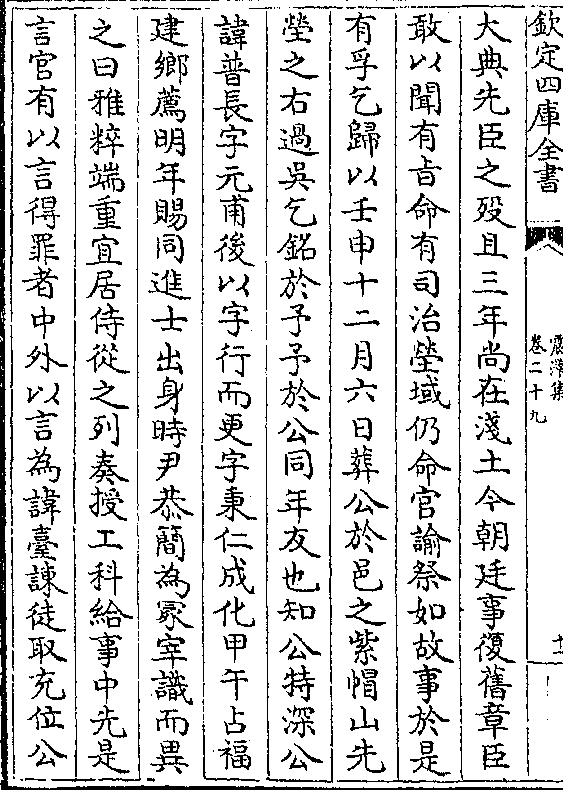 欽定四庫全書
震澤集
卷二十九
十
大典先臣之歿且三年尚在淺土今朝廷事復舊章臣
敢以聞有㫖命有司治塋域仍命官諭祭如故事於是
有孚乞歸以壬申十二月六日葬公於邑之紫帽山先
塋之右過吳乞銘於予予於公同年友也知公特深公
諱普長字元甫後以字行而更字秉仁成化甲午占福
建鄉薦明年賜同進士出身時尹恭簡為冢宰識而異
之曰雅粹端重宜居侍從之列奏授工科給事中先是
言官有以言得罪者中外以言為諱臺諫徒取充位公